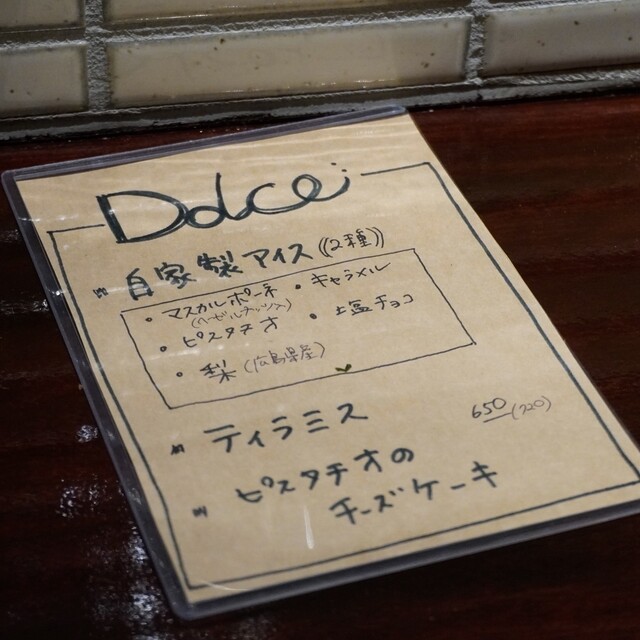 Dolce
自家製アイス((2種))
・マスカルポーネ ・キャラメル
(ヘーゼルナッツ入)
・ピスタチオ ・塩チョコ
・梨(広島県産)
ティラミス
650(720)
ピスタチオの
チーズケーキ